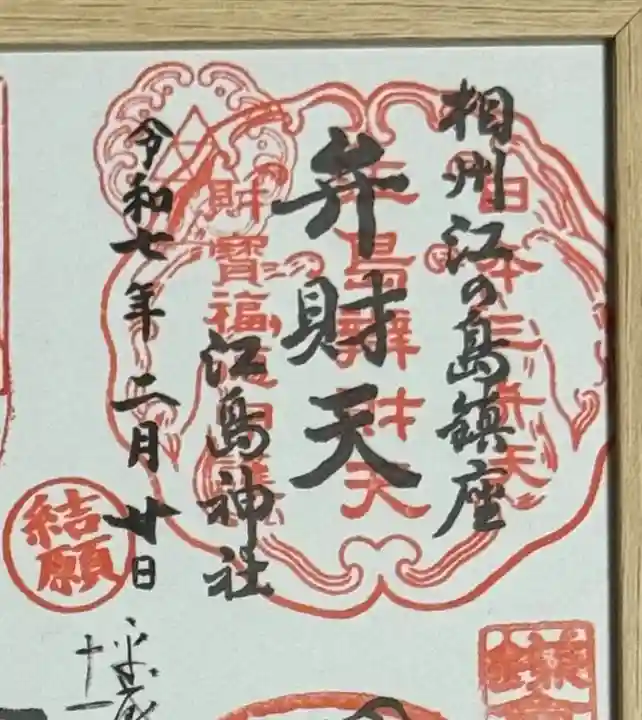 相州江の島鎮座
弁財天
江島神社
令和七年二月廿日
日本三弁天
江島辨財天
財寶福
結願
十一